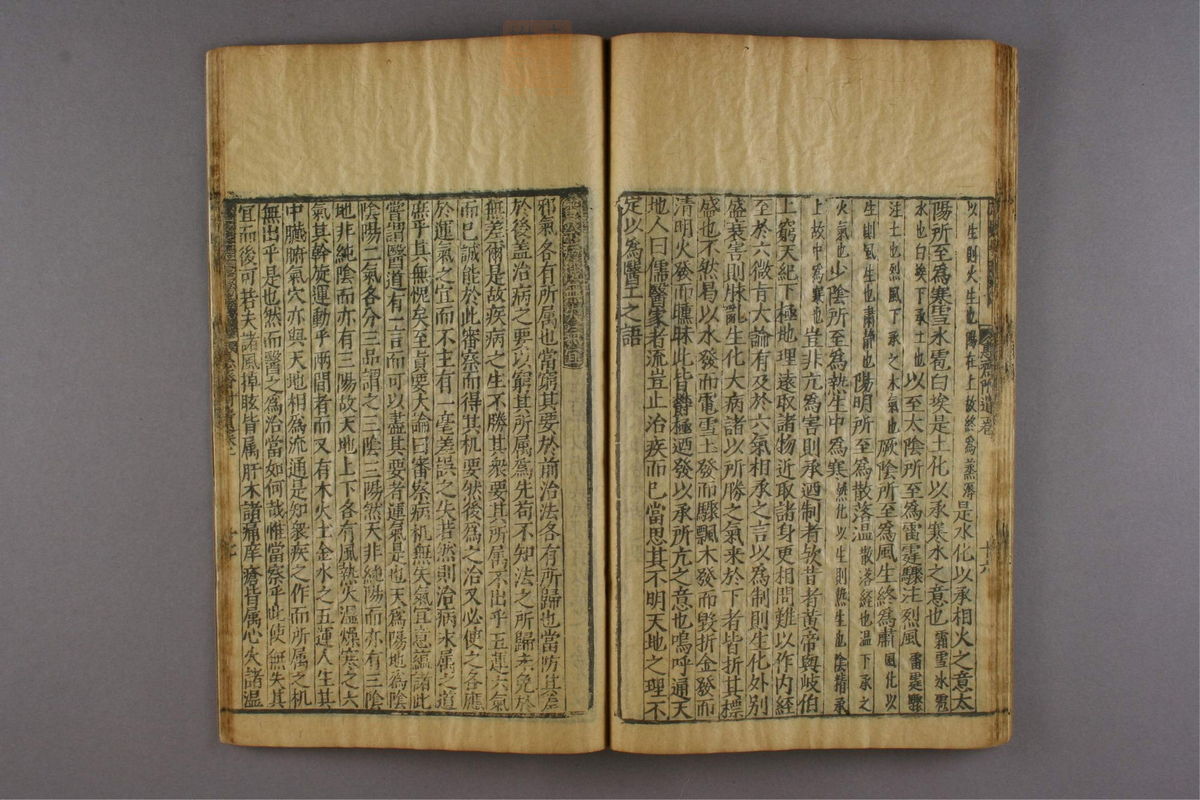 以生則火生也陽在上故終為蒸溽是水化以承相火之意太
陽所至為寒雪水雹白埃是土化以承寒水之意也霜雪氷雹
水也白埃下承土也以至太陰所至為雷霆驟注烈風雷霆驟
注土也烈風下承之木氣也厥陰所至為風生終為肅風化以
生則風生也肅靜也陽明所至為散落溫散落經也溫下承之
火氣也少陰所至為熱生中為寒熱化以生則熱生也陰精承
上故中為寒也豈非亢為害則承迺制者欤昔者黃帝與岐伯
上窮天紀下極地理遠取諸物近取諸身更相問難以作內經
至於六微旨大論有及於六氣相承之言以為制則生化外別
盛衰害則敗亂生化大病諸以所勝之氣来於下者皆折其標
盛也不然曷以水發而雹雪土發而驟飄木發而毀折金發而
清明火發而曛昧此皆欝極迺發以承所亢之意也嗚呼通天
地人曰儒醫家者流豈止治疾而已當思其不明天地之理不
定以為醫工之語
邪氣各有所属也當窮其要於前治法各有所歸也當防其差
於後盖治病之要以窮其所属為先苟不知法之所歸未免於
無差爾是故疾病之生不勝其衆要其所属不出乎五運六氣
而已誠能於此審察而得其机要然後為之治又必使之各應
於運氣之宜而不主有一毫差誤之失若然則治病求属之道
庶乎其無愧矣至貞要大論曰審察病机無失氣宜意蘊諸此
嘗謂醫道有一言而可以盡其要者運氣是也天為陽地為陰
陰陽二氣各分三品謂之三陰三陽然天非純陽而亦有三陰
地非純陰而亦有三陽故天地上下各有風熱火温燥寒之六
氣其幹旋運動乎兩間者而又有木火土金水之五運人生其
中臓腑氣穴亦與天地相為流通是知衆疾之作而所属之机
無出乎是也然而醫之為治當如何哉惟當察乎此使無失其
宜而後可若夫諸風掉眩皆属肝木諸痛痒瘡皆属心火諸温